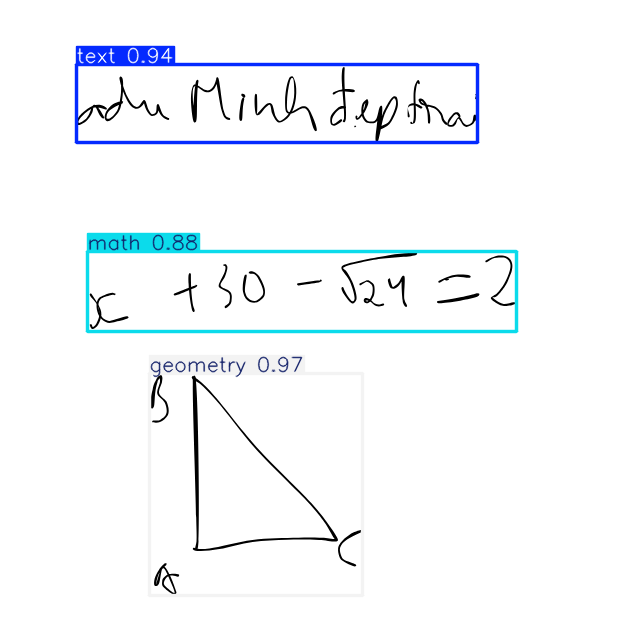 text 0.94
Minh đẹp trai
math 0.88
x + 30 - √24 = 2
geometry 0.97
B
A
C